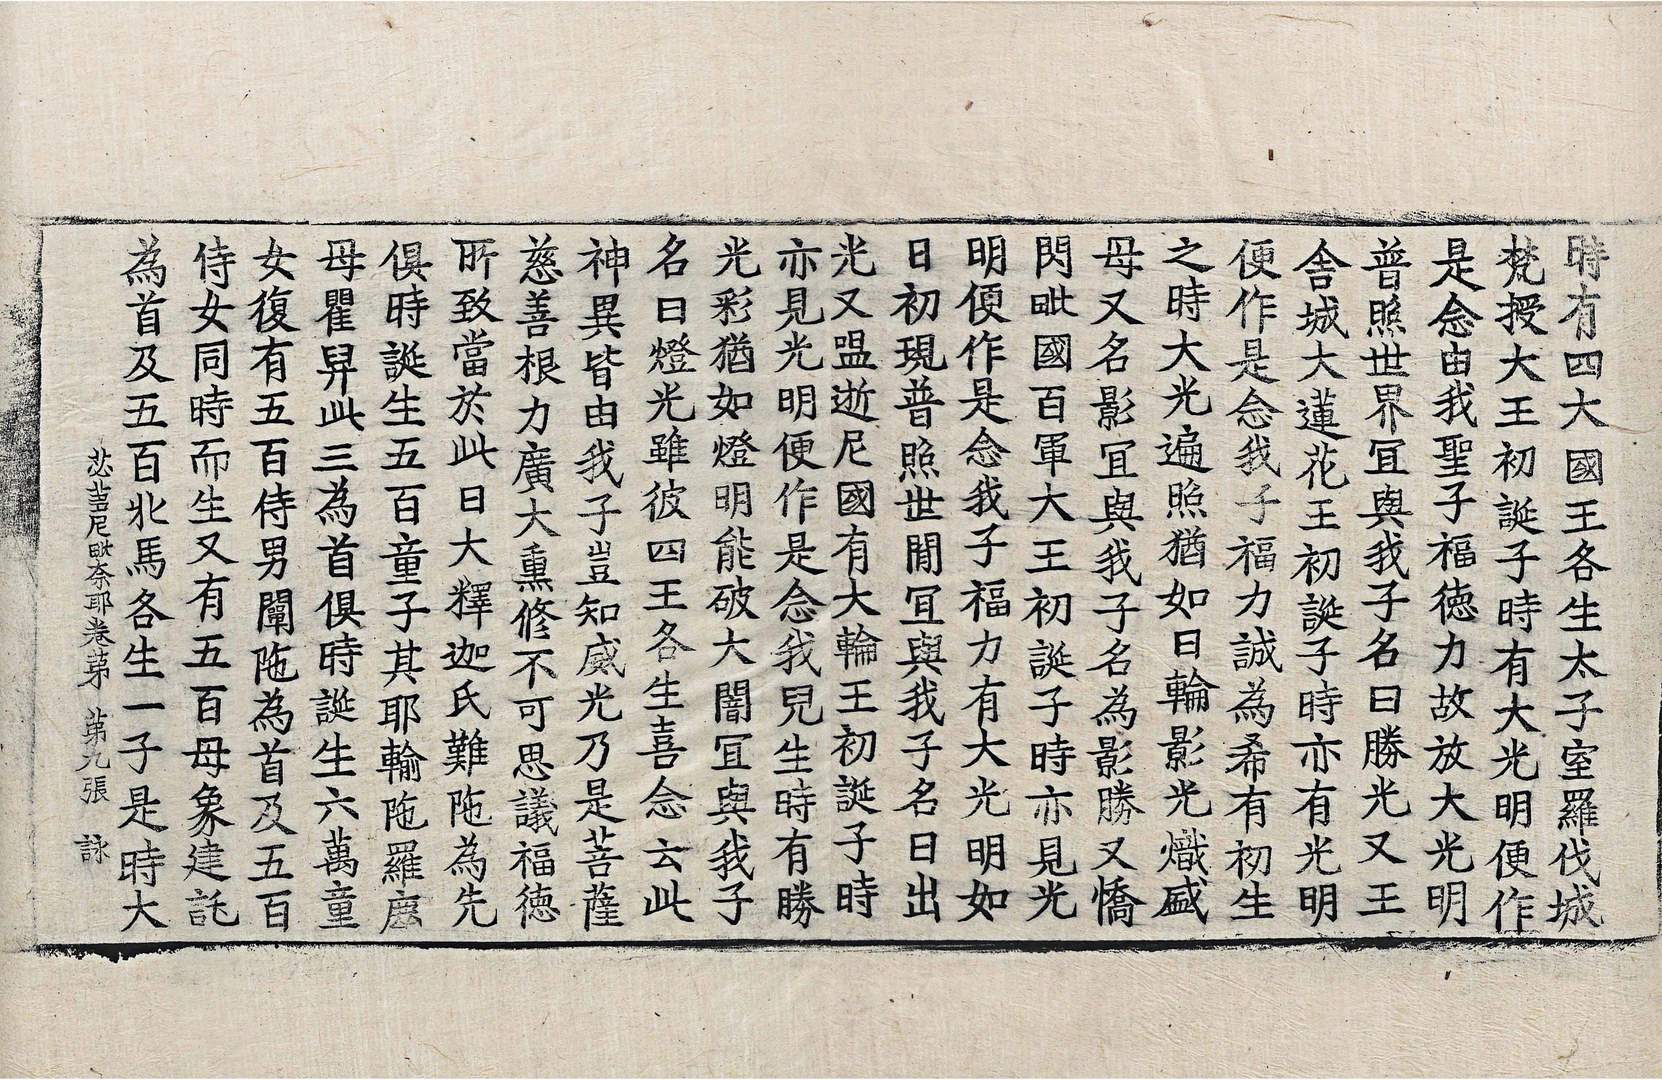 時有四大國王各生太子室羅伐城
梵授大王初誕子時有大光明便作
是念由我聖子福德力故放大光明
普照世界冝與我子名曰勝光又王
舍城大蓮花王初誕子時亦有光明
便作是念我子福力誠為希有初生
之時大光遍照猶如日輪影光熾盛
母又名影冝與我子名為影勝又憍
閃毗國百軍大王初誕子時亦見光
明便作是念我子福力有大光明如
日初現普照世間冝與我子名曰出
光又嗢逝尼國有大輪王初誕子時
亦見光明便作是念我兒生時有勝
光彩猶如燈明能破大闇冝與我子
名曰燈光雖彼四王各生喜念云此
神異皆由我子豈知威光乃是菩薩
慈善根力廣大熏修不可思議福德
所致當於此日大釋迦氏難陁為先
俱時誕生五百童子其耶輸陁羅
母瞿昇此三為首俱時誕生六萬童
女復有五百侍男闡陁為首及五百
侍女同時而生又有五百母象建託
為首及五百牝馬各生一子是時大
苾蒭尼毗奈耶卷第 第九張 詠